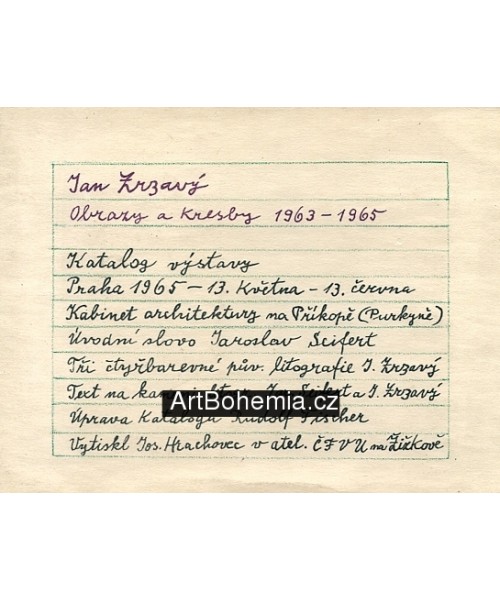 Jan Zrzavý
Obrazy a kresby 1963-1965
Katalog výstavy
Praha 1965 - 13. května - 13. června
Kabinet architektury na Příkopě (Purkyně)
Úvodní slovo Jaroslav Seifert
Tři čtyřbarevné pův. litografie J. Zrzavý
Text na Seifert a J. Zrzavý
ArtBohemia.cz
Úprava katalogu Rudolf Fischer
Vytiskl Jos. Hrachovec v atel. ČFVU na Žižkově